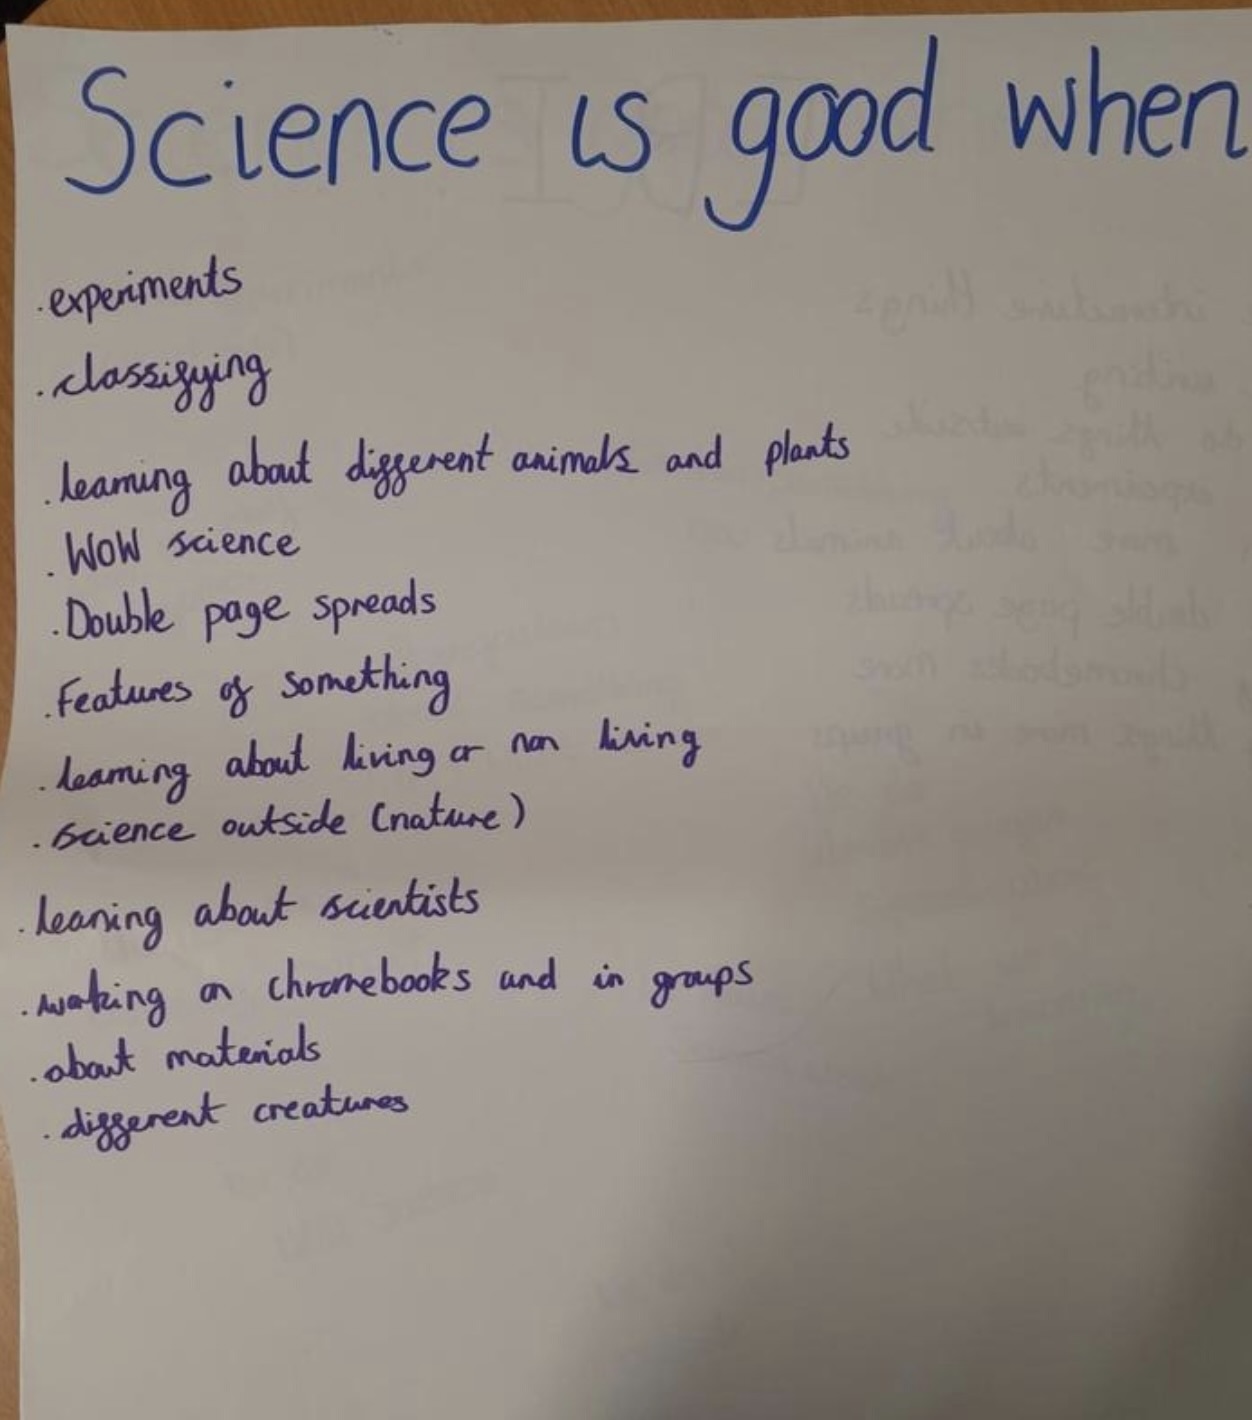 Science is good when
. experiments
. classifying
. learning about different animals and plants
. WOW science
. Double page spreads
. Features of something
. learning about living or non living
. science outside (nature)
. leaning about scientists
. working on chromebooks and in groups
. about materials
. different creatures